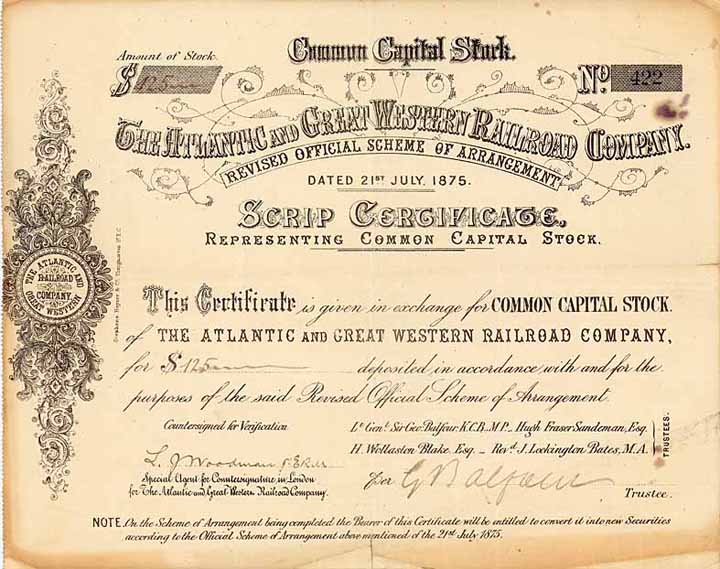 Common Capital Stock.
Amount of Stock.
$ 125
No. 422
The Atlantic and Great Western Railroad Company.
REVISED OFFICIAL SCHEME OF ARRANGEMENT
DATED 21ST JULY, 1875.
Scrip Certificate,
Representing Common Capital Stock.
THE ATLANTIC AND GREAT WESTERN
RAILROAD
COMPANY
This Certificate is given in exchange for COMMON CAPITAL STOCK.
of THE ATLANTIC AND GREAT WESTERN RAILROAD COMPANY,
for $ 125 deposited in accordance with and for the
purposes of the said Revised Official Scheme of Arrangement.
Countersigned for Verification
Lt. Genl. Sir Geo. Balfour K.C.B., M.P. Hugh Fraser Sandeman, Esq.
H. Wollaston Blake, Esq. Revd. J. Lockington Bates, M.A.
TRUSTEES.
L. J. Woodman
Special Agent for Countersignature in London
for The Atlantic and Great Western Railroad Company.
Per G Balfour
Trustee.
NOTE. On the Scheme of Arrangement being completed the Bearer of this Certificate will be entitled to convert it into new Securities
according to the Official Scheme of Arrangement above mentioned of the 21st July 1875.